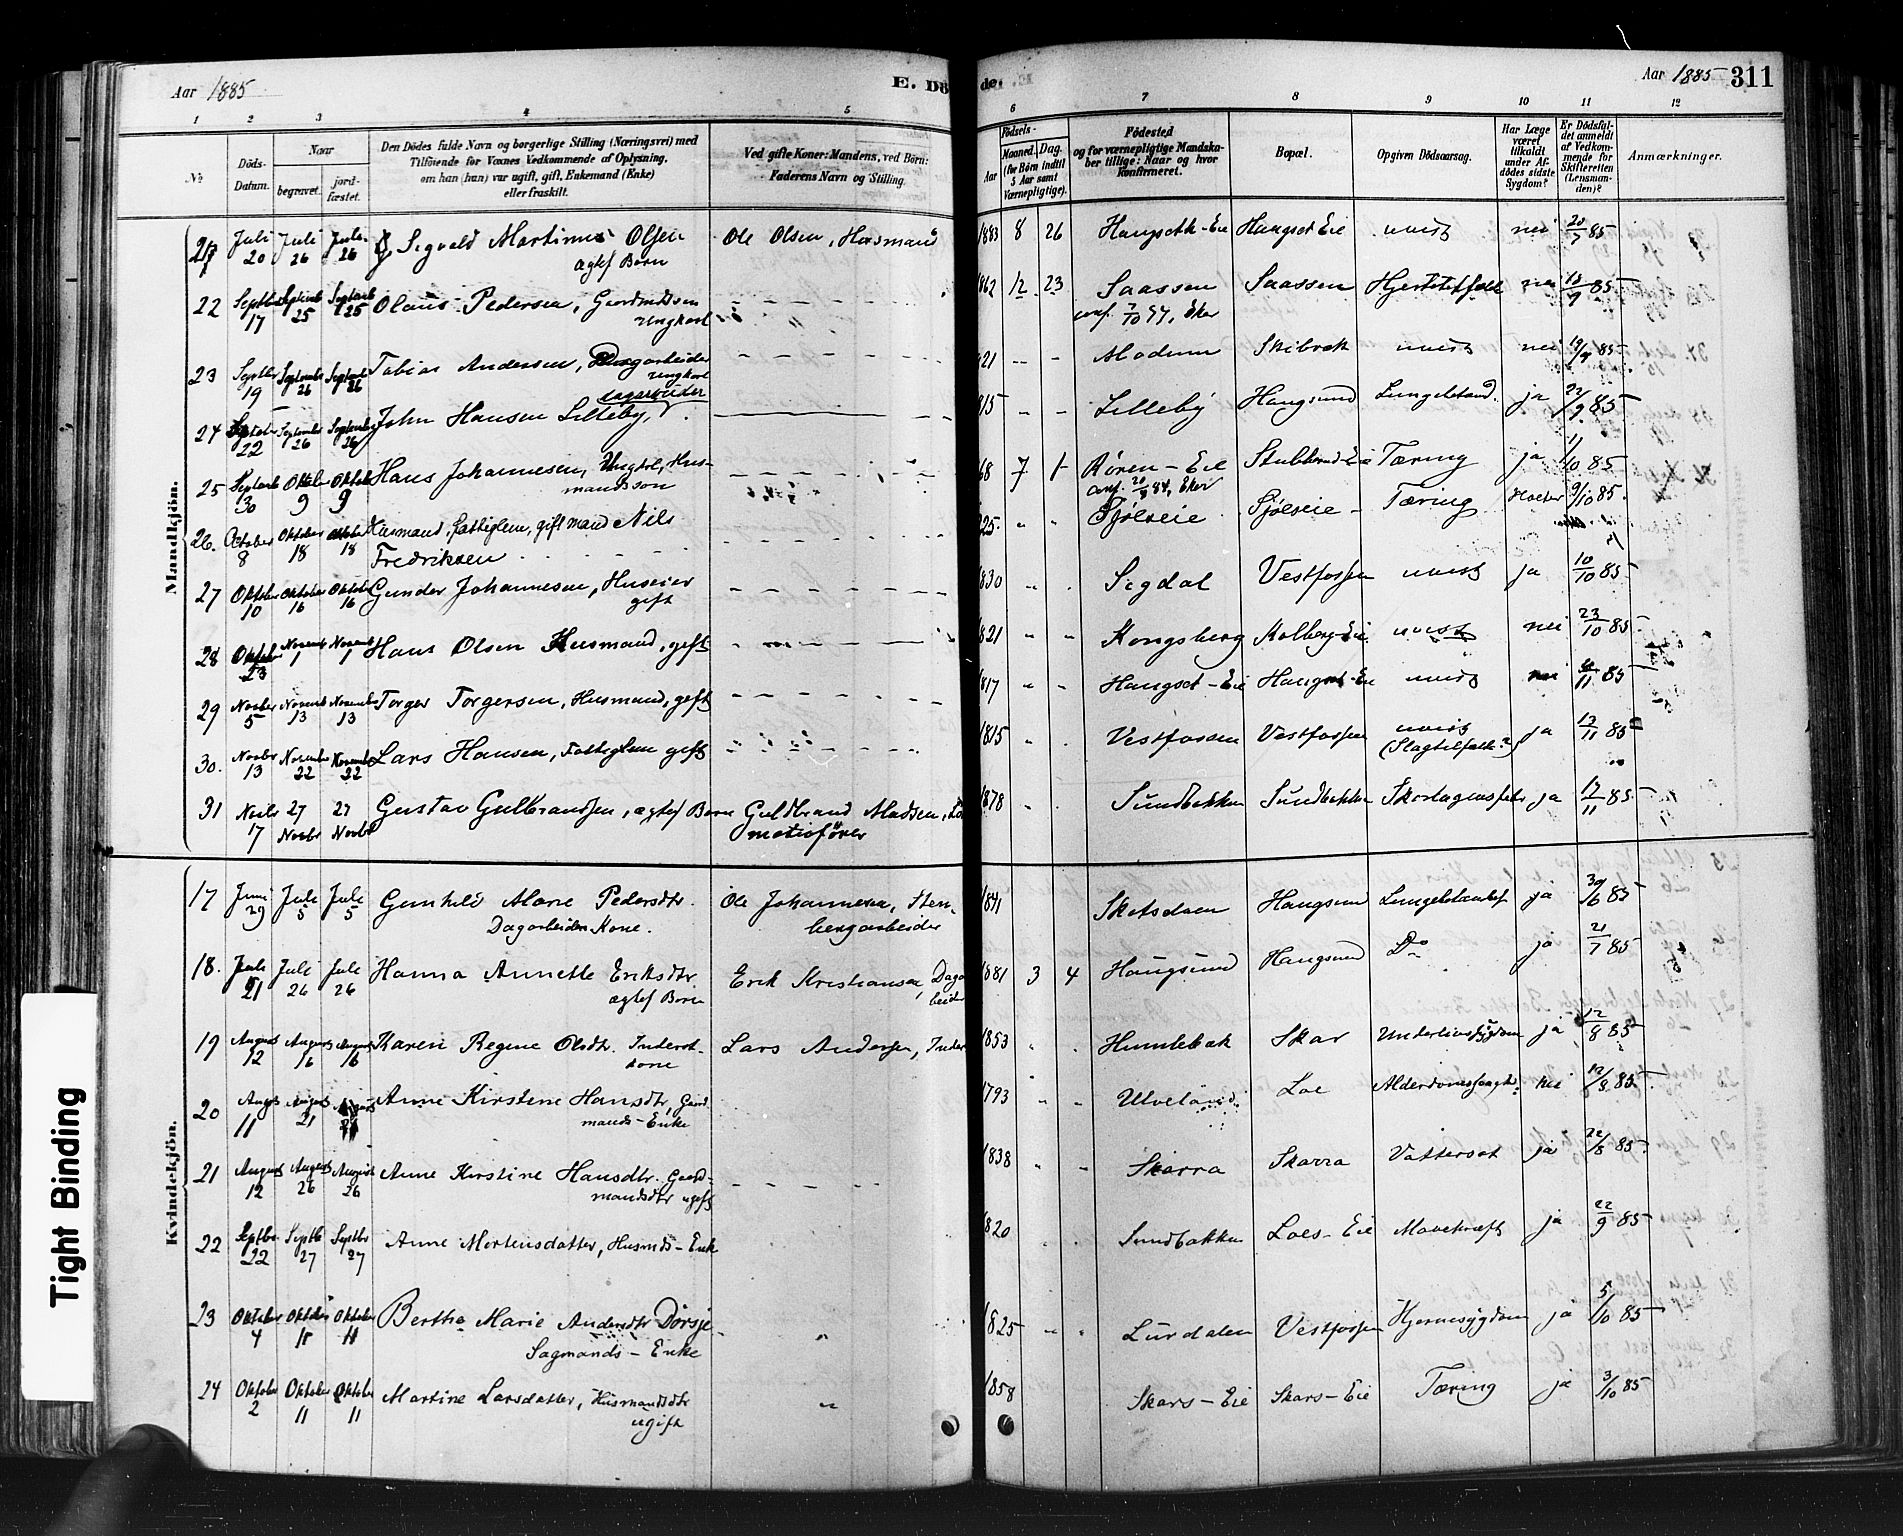 Aar 1885
E. Dö
de.
Aar 1885
311
1 2 3 4 5 6 7 8 9 10 11 12
№
Döds-Datum.
Naar
begravet.
jord-fæstet.
Den Dödes fulde Navn og borgerlige Stilling (Næringsvei) med
Tilföiende for Voxnes Vedkommende af Oplysning,
om han (hun) var ugift, gift, Enkemand (Enke)
eller fraskilt.
Ved gifte Koner: Mandens, ved Börn:
Faderens Navn og Stilling.
Födsels-
Aar
Maaned. Dag.
(for Börn indtil
5 Aar samt
Værnepligtige).
Födested
og for værnepligtige Mandska-
ber tillige: Naar og hvor
konfirmeret.
Bopæl.
Opgiven Dödsaarsag.
Har Læge
været
tilkaldt
under Af-
dödes sidste
Sygdom?
Er Dödsfal-
det anmeldt
af Vedkom-
mende for
Skifteretten
(Lensman-
den)?
Anmærkninger.
Mandkjön.
21 Juli 20 Juli 26 Juli 26 Sigvald Martinius Olsen Ole Olsen, Husmand 1883 8 26 Haugseth-Eie Haugset Eie uvist nei 20/7 85
ægtef Barn
22 Septbr 17 Septemb 25 Septemb 25 Olaus Pedersen, Gaardmdssøn 862 12 23 Saassen Saassen Hjertetilfælde nei 18/9 85
Ungkarl
conf. 7/10 77, Eker
23 Septbr 19 Septembr 26 Septemb 26 Tobias Andersen, Dagarbeider 821 Modum Skibrek uvist nei 19/9 85
Ungkarl
24 Septbr 22 September 26 September 26 John Hansen Lilleby, dagarbeider 815 Lilleby Haugsund Lungebetænd. ja 22/9 85
25 Septemb 30 Oktobr 9 Oktobr 9 Hans Johannesen, Ungkarl, Hus-
mandssøn 68 7 1 Røren-Eie Stubberud-Eie Tæring ja 1/10 85
conf. 20/9 84, Eker
26. October 8 Oktober 18 Oktober 18 Husmand, fattiglem, gift mand Nils
Fredriksen 825 Sjølseie Sjølseie Tæring 9/10 85
27 Oktober 10 Oktober 16 Oktober 16 Gunder Johannesen, Huseier 830 Sigdal Vestfossen uvist ja 10/10 85
gift
28 Oktober 23 Novemb 1 Novemb 1 Hans Olsen Husmand, gift 1821 Kongsberg Kolberg-Eie uvist nei 23/10 85
29 Novbr 5 Novemb 13 Novembr 13 Torger Torgersen, Husmand, gift 1817 Haugset-Eie Haugset-Eie uvist nei /11 85
30. Novbr 13 Novembr 22 Novembr 22 Lars Hansen, Fattiglem gift 1815 Vestfossen Vestfossen uvist
(Slagtilfælde?) ja 13/11 85
31 Novbr 17 27 Novbr 27 Novbr Gustav Gulbrandsen, ægtef Barn Guldbrand Madsen, Lo
motivfører 1878 Sundbakken Sundbakken Skarlagensfeber ja 17/11 85
Kvindekjön.
17 Juni 29 Juli 5 Juli 5 Gunhild Marie Pedersdtr. Ole Johannesen, Sten- 1841 Skotselven Haugsund Lungebetændelse ja 30/6 85
Dagarbeider Kone. bergarbeider
18. Juli 21 Juli 26 Juli 26 Hanna Annette Eriksdtr. Erik Kristiansen, Dagar
beider 1881 3 4 Haugsund Haugsund Do ja 21/7 85
ægtef Barn
19 August 12 August 16 August 16 Karen Regine Olsdtr. Inderst- Lars Andersen, Inder 1853 Humlebæk Skar Underlivssygdom ja 12/8 85
kone
20 August 11 August 21 August 21 Anne Kirstine Hansdtr, Gaard 1793 Loe Alderdomssvaghed nei 12/8 85
mands-Enke
21 August 12 August 26 August 26 Anne Kirstine Hansdtr. Gaard- 1838 Skarra Skarra Vattersot ja 22/8 85
mandsdtr ugift
22 Septbr 22 Septb 27 Septbr 27 Anne Mortensdatter, Husmds-Enke 1820 Sundbakken Loes-Eie Mavekræft ja 22/9 85
23 Oktober 4 Oktober 11 Oktober 11 Berthe Marie Andersdtr Dörsje " 1825 Lurdalen Vestfossen Hjernesygdom ja 5/10 85
Sagmands-Enke
24 Oktober 2 Oktober 11 Oktober 11 Martine Larsdatter, Husmandsdtr " 1858 Skars-Eie Skars-Eie Tæring ja 3/10 85
ugift
Tight Binding